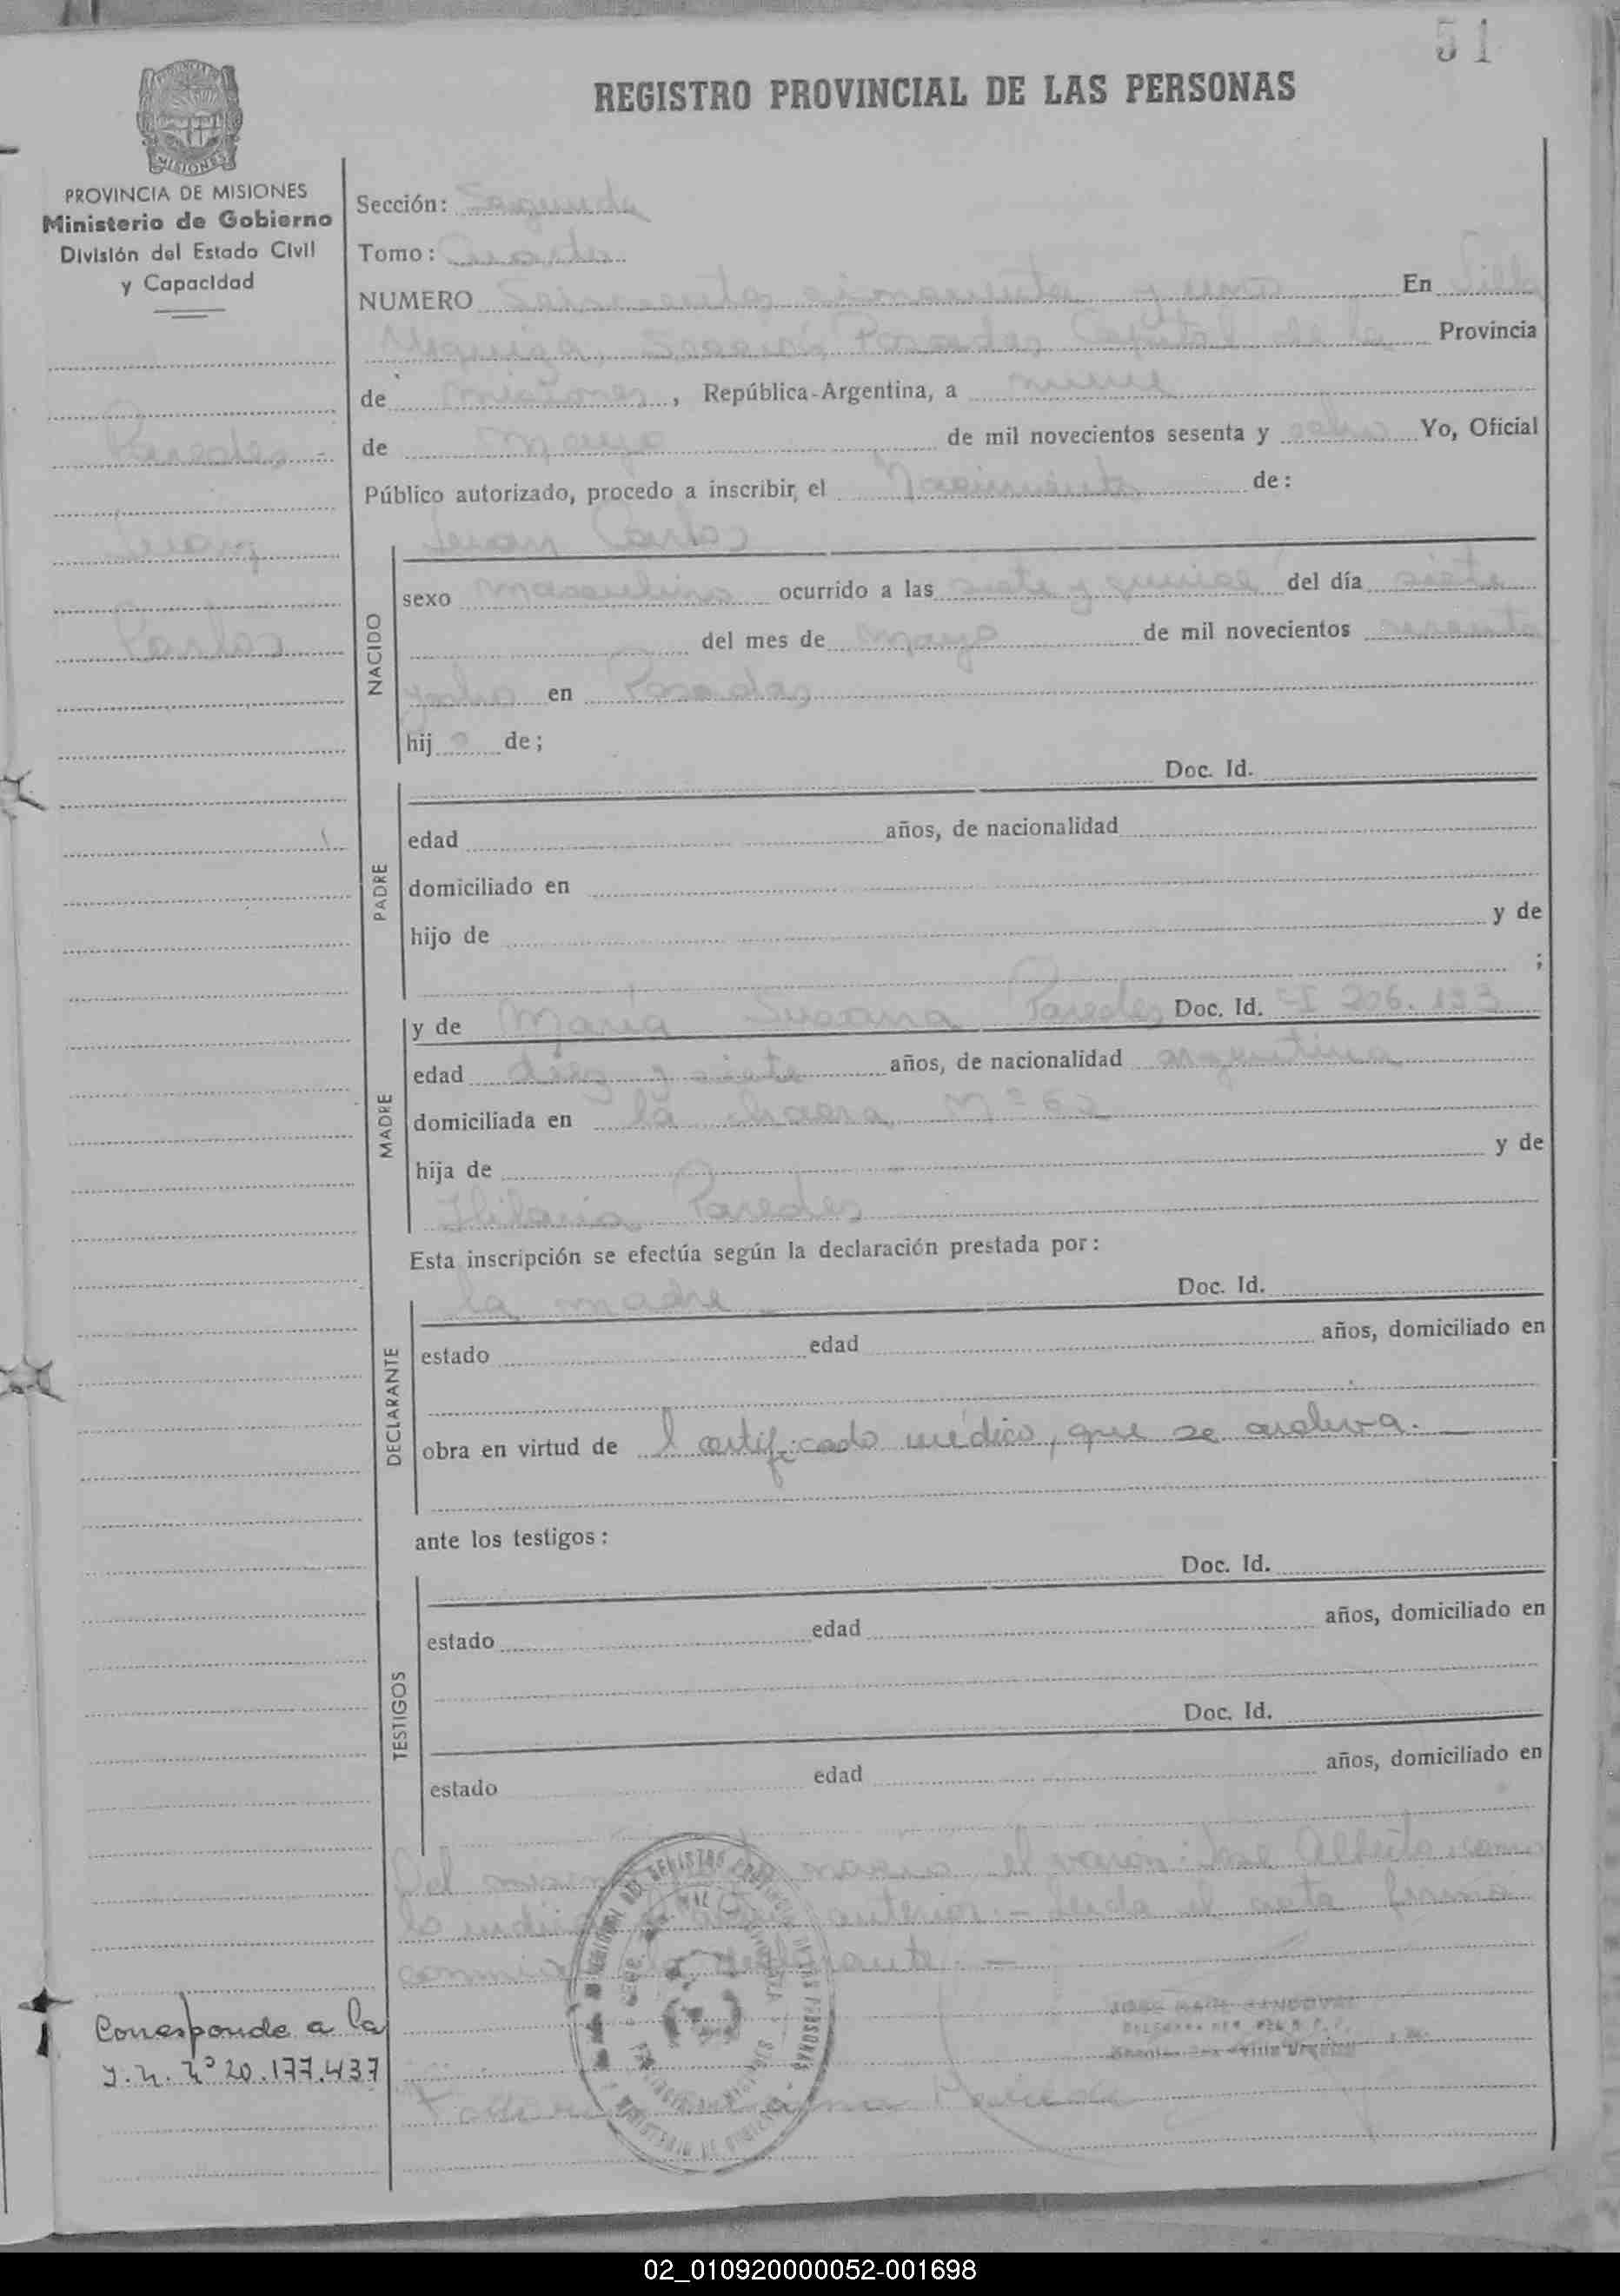 51
REGISTRO PROVINCIAL DE LAS PERSONAS
MISIONES
PROVINCIA DE MISIONES
Ministerio de Gobierno
División del Estado Civil
y Capacidad
Sección: Segunda
Tomo: Cuarto
NUMERO Seiscientos cincuenta y uno En Villa
Urquiza, Sección Posadas Capital de la Provincia
de Misiones, República Argentina, a nueve
de mayo de mil novecientos sesenta y ocho Yo, Oficial
Público autorizado, procedo a inscribir, el Nacimiento de:
Paredes
Juan
Carlos
Juan Carlos
NACIDO
sexo masculino ocurrido a las siete y quince del día siete
del mes de mayo de mil novecientos sesenta
y ocho en Posadas
hijo de;
Doc. Id.
PADRE
edad años, de nacionalidad
domiciliado en
hijo de y de
;
MADRE
y de María Susana Paredes Doc. Id. CI 206.193
edad diez y siete años, de nacionalidad argentina
domiciliada en la chacra Nº
hija de y de
Hilaria Paredes
Esta inscripción se efectúa según la declaración prestada por:
la madre - Doc. Id.
DECLARANTE
estado edad años, domiciliado en
obra en virtud de l certificado médico, que se archiva. -
ante los testigos:
Doc. Id.
TESTIGOS
estado edad años, domiciliado en
Doc. Id.
estado edad años, domiciliado en
Del mismo nació el varón: José Alberto como
lo indica anterior. - Leída el acta firma
conmigo la declarante. -
JOSE RAUL SANDOVAL
Corresponde a la
I.N. Nº 20.177.437
02_010920000052-001698